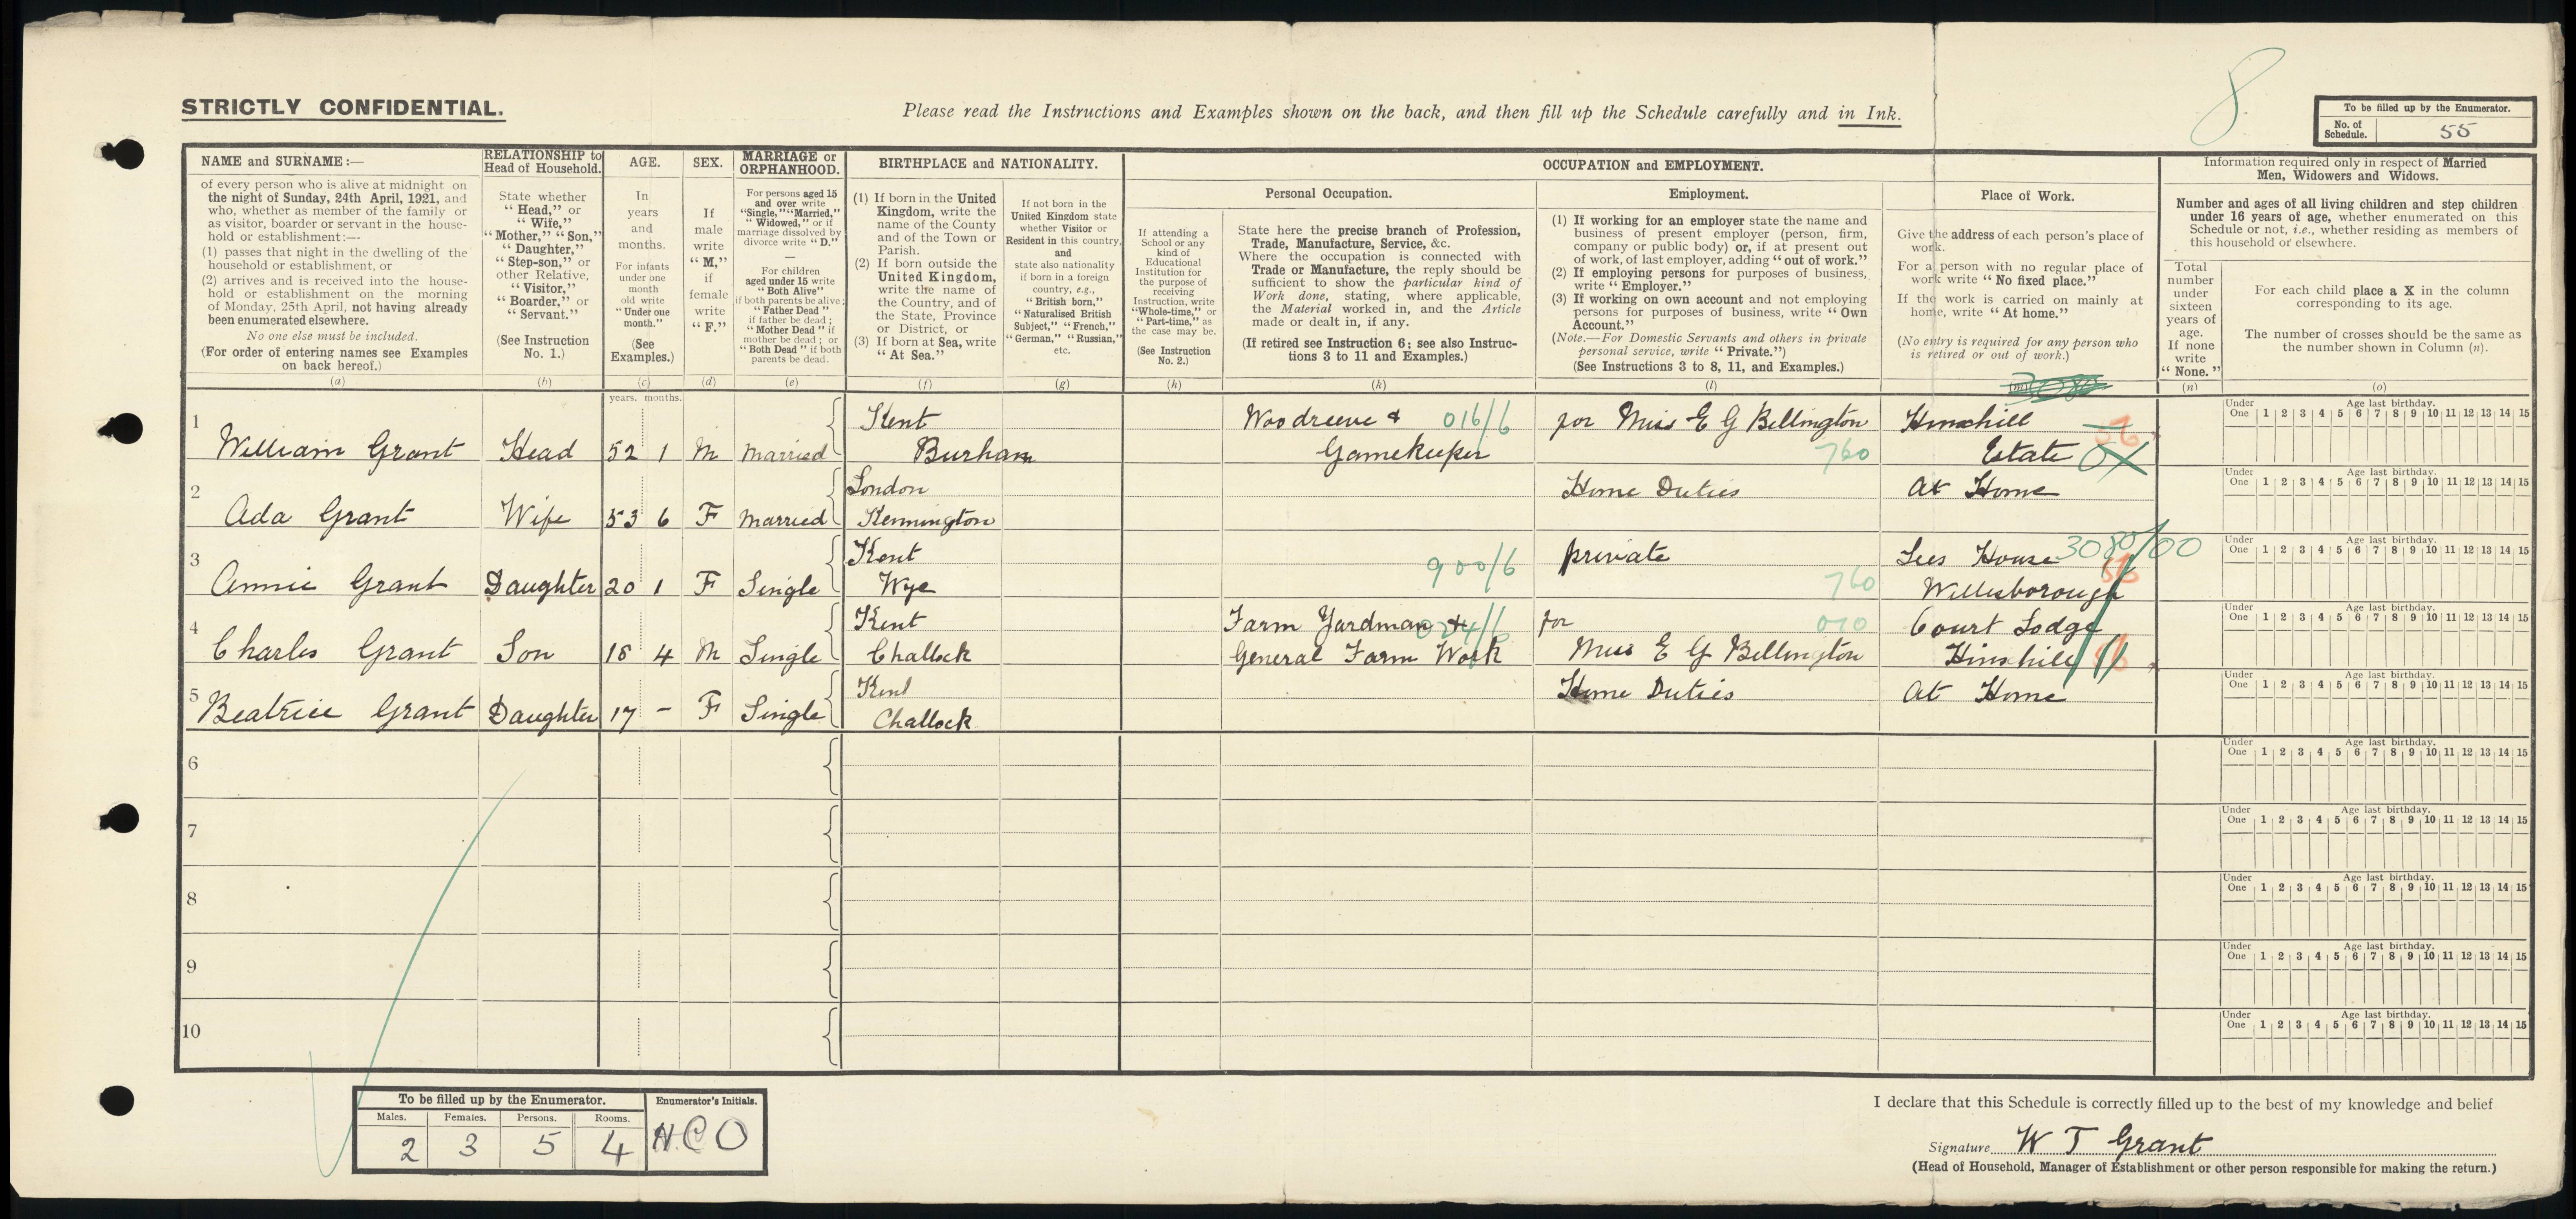 8
STRICTLY CONFIDENTIAL.
Please read the Instructions and Examples shown on the back, and then fill up the Schedule carefully and in Ink.
To be filled up by the Enumerator.
No. of Schedule. 55
NAME and SURNAME:—
of every person who is alive at midnight on
the night of Sunday, 24th April, 1921, and
who, whether as member of the family or
as visitor, boarder or servant in the house-
hold or establishment:—
(1) passes that night in the dwelling of the
household or establishment, or
(2) arrives and is received into the house-
hold or establishment on the morning
of Monday, 25th April, not having already
been enumerated elsewhere.
No one else must be included.
(For order of entering names see Examples
on back hereof.)
(a)
RELATIONSHIP to
Head of Household.
State whether
"Head," or
"Wife,"
"Mother," "Son,"
"Daughter,"
"Step-son," or
other Relative,
"Visitor,"
"Boarder," or
"Servant."
(See Instruction
No. 1.)
(b)
AGE.
In
years
and
months.
For infants
under one
month
old write
"Under one
month."
(See
Examples.)
(c)
SEX.
If
male
write
"M,"
if
female
write
"F."
(d)
MARRIAGE or
ORPHANHOOD.
For persons aged 15
and over write
"Single," "Married,"
"Widowed," or if
marriage dissolved by
divorce write "D."
—
For children
aged under 15 write
"Both Alive"
if both parents be alive;
"Father Dead"
if father be dead;
"Mother Dead" if
mother be dead; or
"Both Dead" if both
parents be dead.
(e)
BIRTHPLACE and NATIONALITY.
(1) If born in the United
Kingdom, write the
name of the County
and of the Town or
Parish.
(2) If born outside the
United Kingdom,
write the name of
the Country, and of
the State, Province
or District, or
(3) If born at Sea, write
"At Sea."
(f)
If not born in the
United Kingdom state
whether Visitor or
Resident in this country,
and
state also nationality
if born in a foreign
country, e.g.,
"British born,"
"Naturalised British
Subject," "French,"
"German," "Russian,"
etc.
(g)
OCCUPATION and EMPLOYMENT.
If attending a
School or any
kind of
Educational
Institution for
the purpose of
receiving
Instruction, write
"Whole-time," or
"Part-time," as
the case may be.
(See Instruction
No. 2.)
(h)
Personal Occupation.
State here the precise branch of Profession,
Trade, Manufacture, Service, &c.
Where the occupation is connected with
Trade or Manufacture, the reply should be
sufficient to show the particular kind of
Work done, stating, where applicable,
the Material worked in, and the Article
made or dealt in, if any.
(If retired see Instruction 6; see also Instruc-
tions 3 to 11 and Examples.)
(k)
Employment.
(1) If working for an employer state the name and
business of present employer (person, firm,
company or public body) or, if at present out
of work, of last employer, adding "out of work."
(2) If employing persons for purposes of business,
write "Employer."
(3) If working on own account and not employing
persons for purposes of business, write "Own
Account."
(Note.—For Domestic Servants and others in private
personal service, write "Private.")
(See Instructions 3 to 8, 11, and Examples.)
(l)
Place of Work.
Give the address of each person's place of
work.
For a person with no regular place of
work write "No fixed place."
If the work is carried on mainly at
home, write "At home."
(No entry is required for any person who
is retired or out of work.)
(m)
Information required only in respect of Married
Men, Widowers and Widows.
Number and ages of all living children and step children
under 16 years of age, whether enumerated on this
Schedule or not, i.e., whether residing as members of
this household or elsewhere.
Total
number
under
sixteen
years of
age.
If none
write
"None."
(n)
For each child place a X in the column
corresponding to its age.
The number of crosses should be the same as
the number shown in Column (n).
(o)
years. months.
1 William Grant Head 52 1 M Married Kent Burham Woodreeve & Gamekeeper 016/6 for Miss E G Bellington 760 Hinxhill Estate
Under One 1 2 3 4 5 6 7 8 9 10 11 12 13 14 15 Age last birthday.
2 Ada Grant Wife 53 6 F Married London Kennington Home Duties At Home
Under One 1 2 3 4 5 6 7 8 9 10 11 12 13 14 15 Age last birthday.
3 Annie Grant Daughter 20 1 F Single Kent Wye 900/6 private 760 Lees House Willesborough 3080/00
Under One 1 2 3 4 5 6 7 8 9 10 11 12 13 14 15 Age last birthday.
4 Charles Grant Son 18 4 M Single Kent Challock Farm Yardman & General Farm Work for Miss E G Bellington 010 Court Lodge Hinxhill
Under One 1 2 3 4 5 6 7 8 9 10 11 12 13 14 15 Age last birthday.
5 Beatrice Grant Daughter 17 - F Single Kent Challock Home Duties At Home
Under One 1 2 3 4 5 6 7 8 9 10 11 12 13 14 15 Age last birthday.
6
Under One 1 2 3 4 5 6 7 8 9 10 11 12 13 14 15 Age last birthday.
7
Under One 1 2 3 4 5 6 7 8 9 10 11 12 13 14 15 Age last birthday.
8
Under One 1 2 3 4 5 6 7 8 9 10 11 12 13 14 15 Age last birthday.
9
Under One 1 2 3 4 5 6 7 8 9 10 11 12 13 14 15 Age last birthday.
10
Under One 1 2 3 4 5 6 7 8 9 10 11 12 13 14 15 Age last birthday.
To be filled up by the Enumerator.
Males. Females. Persons. Rooms.
2 3 5 4
Enumerator's Initials.
H.C.O
I declare that this Schedule is correctly filled up to the best of my knowledge and belief
Signature W T Grant
(Head of Household, Manager of Establishment or other person responsible for making the return.)